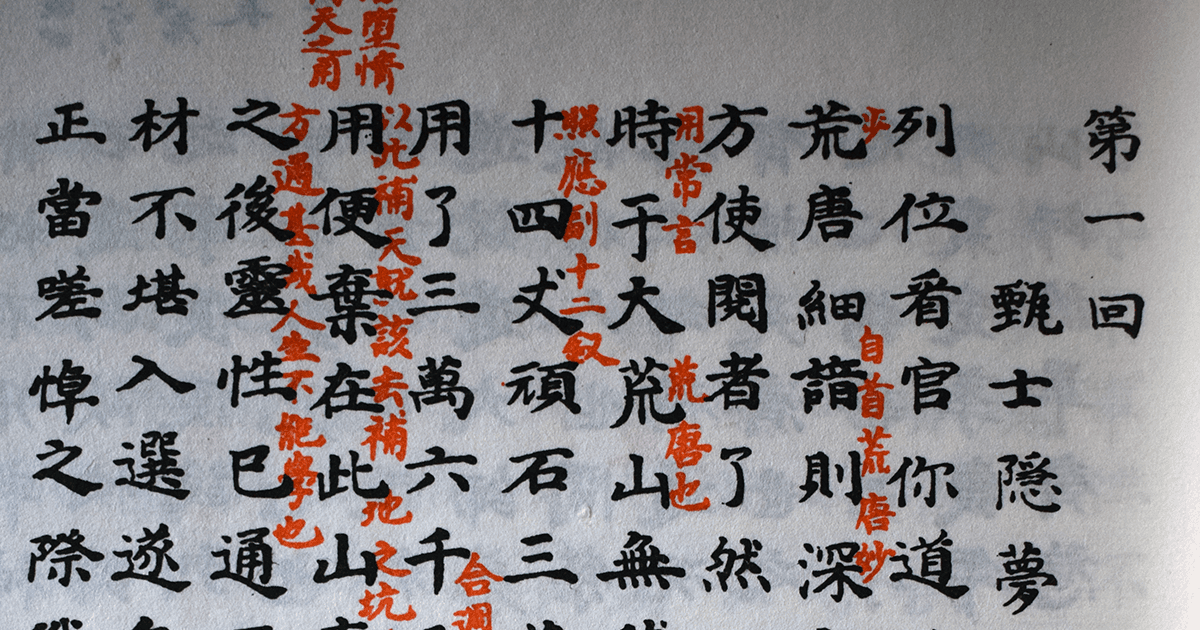 第一回
甄士隠夢
列位看官你道
乎
自首荒唐妙
荒唐細諳則深
方使閱者了然
用常言
荒唐也
時于大荒山無
照應副十二釵
十四丈頑石三
合週
用了三萬六千
堕情
以此補天說該去補地之坑
用便棄在此山
天之用
方通甚或人生不能學也
之後靈性已通
材不堪入選遂
正當嗟悼之際